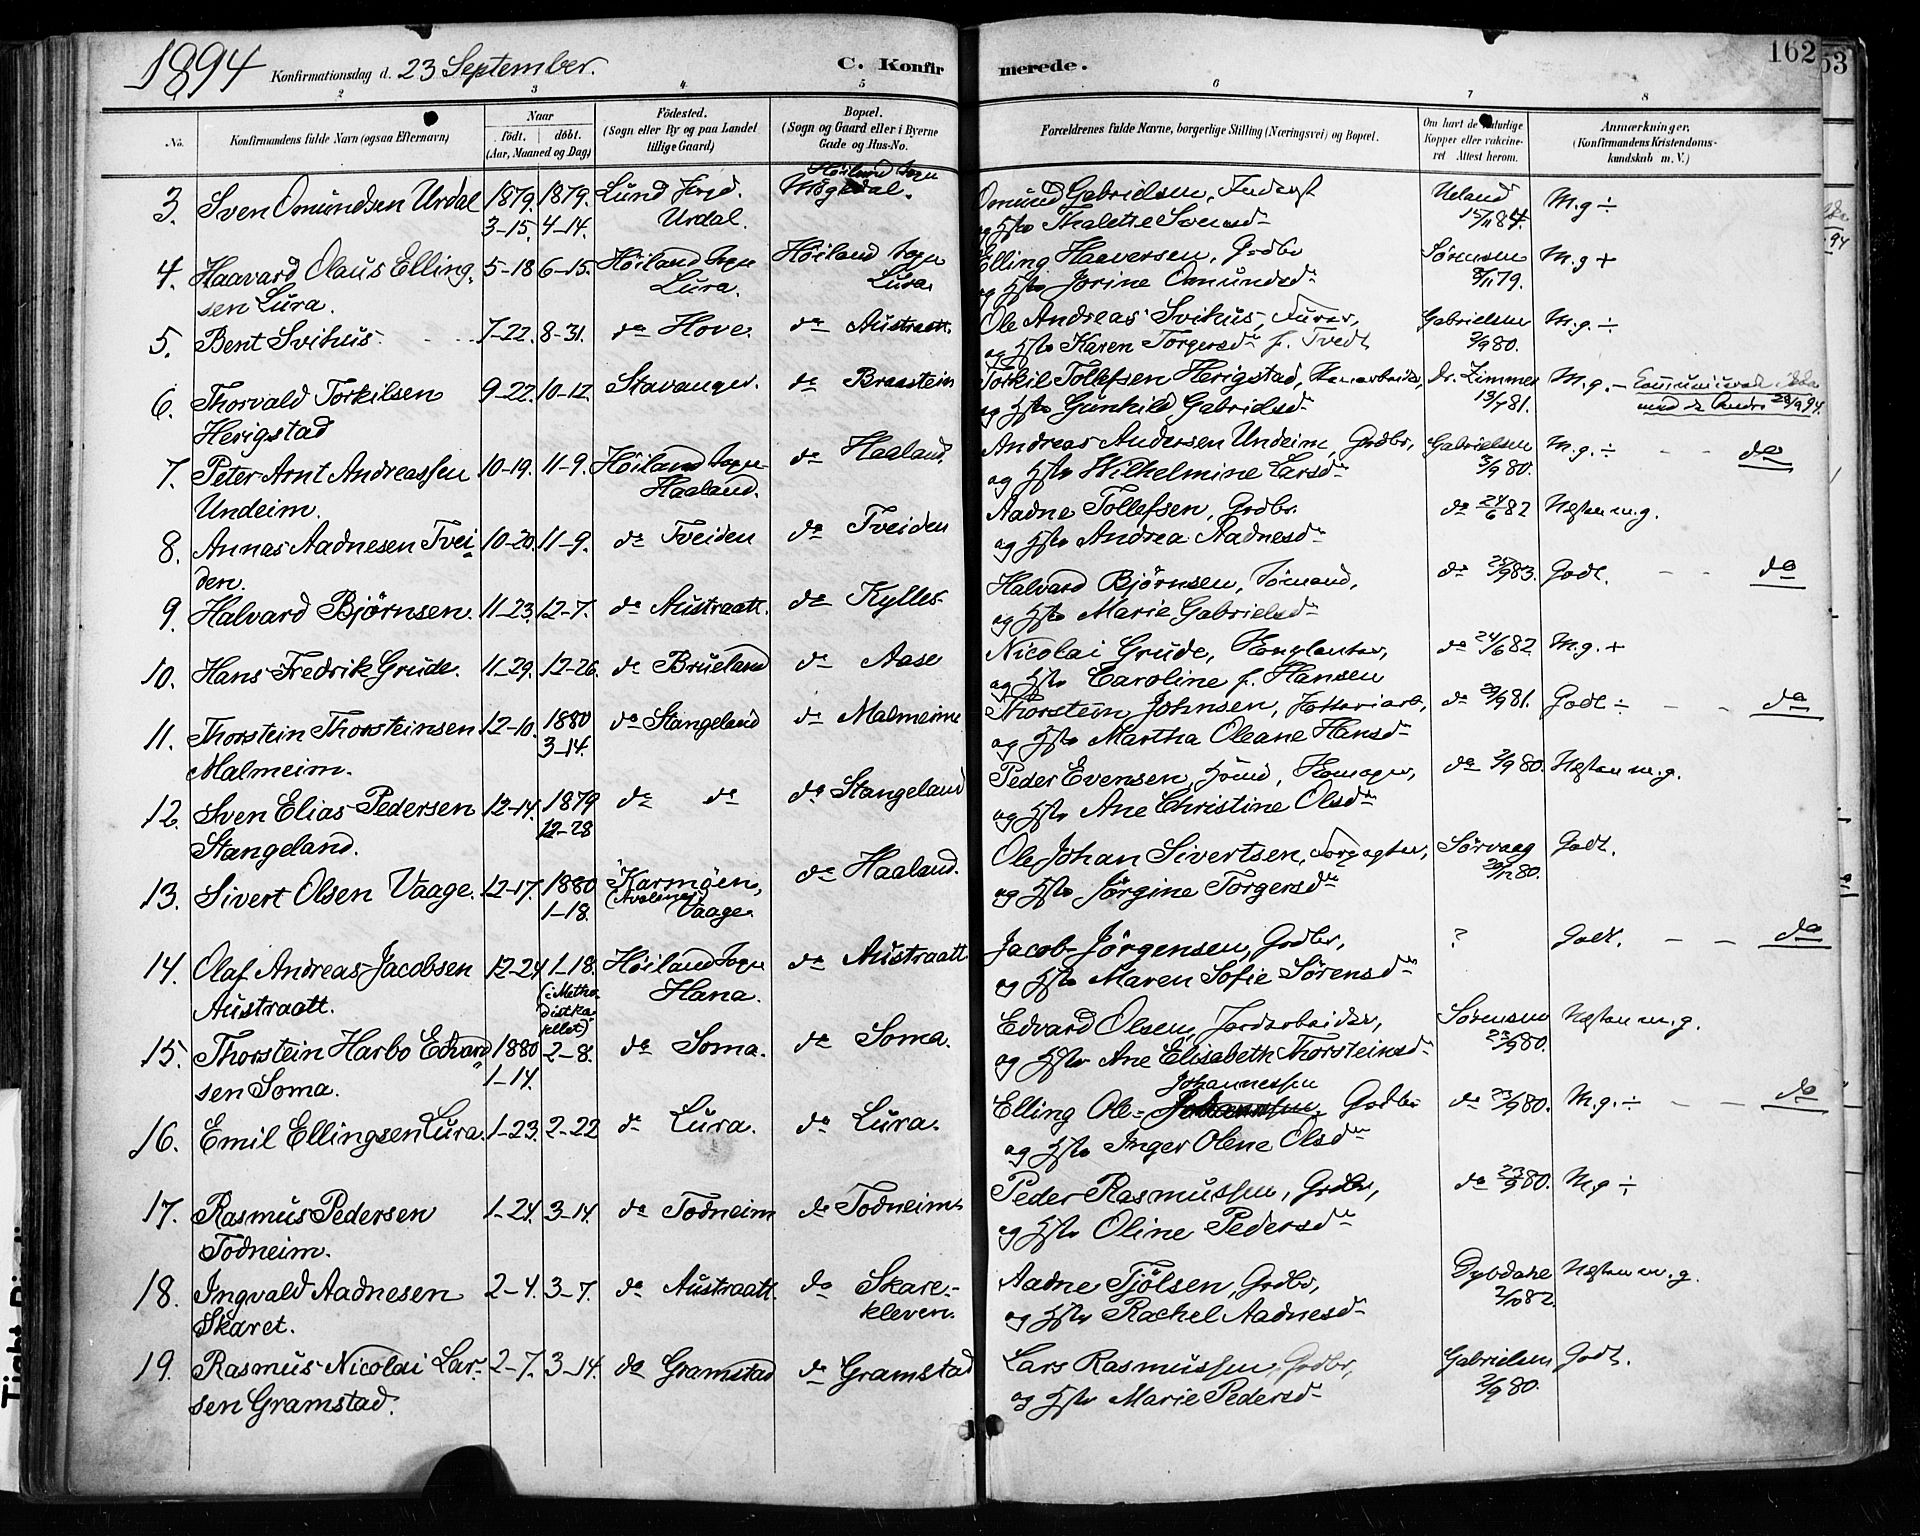 1894 Konfirmationsdag d. 23 September. C. Konfirmerede. 162
53
2 3 4 5 6 7 8
No. Konfirmandens fulde Navn (ogsaa Efternavn) Naar födt. döbt. (Aar, Maaned og Dag) Födested. (Sogn eller By og paa Landet tillige Gaard) Bopæl. (Sogn og Gaard eller i Byerne Gade og Hus-No.) Forældrenes fulde Navne, borgerlige Stilling (Næringsvei) og Bopæl. Om havt de naturlige Kopper eller vaksineret Attest herom. Anmærkninger. (Konfirmandens Kristendomskundskab m. V.)
3. Sven Omundsen Urdal 1879. 3-15. 1879. 4-14. Lund Urdal. Höiland Sogn Omund Gabrielsen,
og Thalette Svensd. Ueland M.g ÷
4. Haavard Olaus Ellingsen Lura. 5-18 6-15. Höiland Sogn Lura. Höiland Sogn Lura. Elling Haaversen, Grdbr
og Hstr Jorine Omundsd. Sörensen M.g +
5. Bent Svihus. 7-22. 8-31. do Hove. do Austraatt. Ole Andreas Svihus,
og Hstr Karen Torgersd. f. Tvedt Gabrielsen 80. M.g. ÷
6. Thorvald Torkilsen Herigstad 9-22. 10-12. Stavanger. do Braastein Torkil Tollefsen Herigstad,
og Hstr Gunhild Gabrielsd. Dr. Zimmer 13/7 81. M.g. - med de Andre 94.
7. Peter Arnt Andreassen Undeim. 10-19. 11-9. Höiland Sogn Haaland. do Haaland. Andreas Andersen Undeim, Grdbr,
og Hstr Wilhelmine Larsd. Gabrielsen 80. M.g. ÷ - - do
8. Annas Aadnesen Tveiden. 10-20. 11-9. do Tveiden do Tveiden Aadne Tollefsen, Grdbr.
og Hstr Andrea Aadnesd. do 24/6 82 Næsten m.g.
9. Halvard Björnsen. 11-23. 12-7. do Austraatt. do Kylles- Halvard Björnsen, Sömand,
og Hstr Marie Gabrielsd. do 83. Godt. - - do
10. Hans Fredrik Grude. 11-29. 12-26. do Brueland do Aase Nicolai Grude,
og Hstr Caroline f. Hansen do 24/6 82. M.g. +
11. Thorstein Thorsteinsen Malmeim. 12-10. 1880 3-14. do Stangeland do Malmeim Thorstein Johnsen,
og Hstr Martha Oleane Hansd. do 81. Godt ÷ - - do
12. Sven Elias Pedersen Stangeland. 12-14. 1879 12-28 do do do Stangeland Peder Evensen,
og Hstr Ane Christine Olsd. do 80. Næsten m.g.
13. Sivert Olsen Vaage. 12-17. 1880 1-18. Karmöen, Vaage. do Haaland. Ole Johan Sivertsen,
og Hstr Jörgine Torgersd. Sörvaag 80. Godt.
14. Olaf Andreas Jacobsen Austraatt. 12-24 1-18. (i Methodistkapellet) Höiland Sogn Hana. do Austraatt. Jacob Jörgensen, Grdbr,
og Hstr Maren Sofie Sörensd. ? Godt. - - do
15. Thorstein Harbo Edvardsen Soma. 1880 1-14. 2-8. do Soma. do Soma. Edvard Olsen, Jordarbeider,
og Hstr Ane Elisabeth Thorsteinsd. Sörensen 23/9 80. Næsten m.g.
16. Emil Ellingsen Lura. 1-23. 2-22 do Lura. do Lura. Elling Ole Johannessen Grdbr
og Hstr Inger Olene Olsd. do 23/9 80. M.g. ÷ - - do
17. Rasmus Pedersen Todneim. 1-24. 3-14. do Todneim do Todneim. Peder Rasmussen, Grdbr,
og Hstr Oline Pedersd. do 23/9 80. M.g ÷
18. Ingvald Aadnesen Skaret. 2-4. 3-7. do Austraatt. do Skarekleven. Aadne Tjölsen, Grdbr,
og Hstr Rachel Aadnesd. Dybdahl 82. Næsten m.g.
19. Rasmus Nicolai Larsen Gramstad. 2-7. 3-14. do Gramstad do Gramstad Lars Rasmussen, Grdbr,
og Hstr Marie Pedersd. Gabrielsen 2/9 80. Godt.